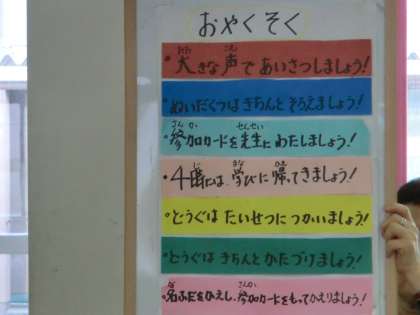 おやくそく
・大きな声であいさつしましょう!
・ぬいだくつはきちんとそろえましょう!
・参加カードを先生にわたしましょう!
・4時には、学びに帰ってきましょう!
・どうぐはたいせつにつかいましょう!
・どうぐはきちんとかたづけましょう!
・名ふだをかえし、参加カードをもってかえりましょう!